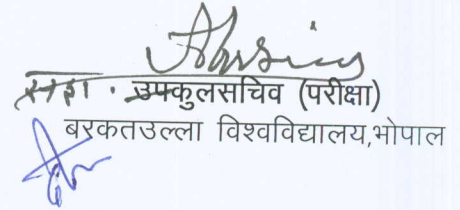 सहा. उपकुलसचिव (परीक्षा)
बरकतउल्ला विश्वविद्यालय,भोपाल